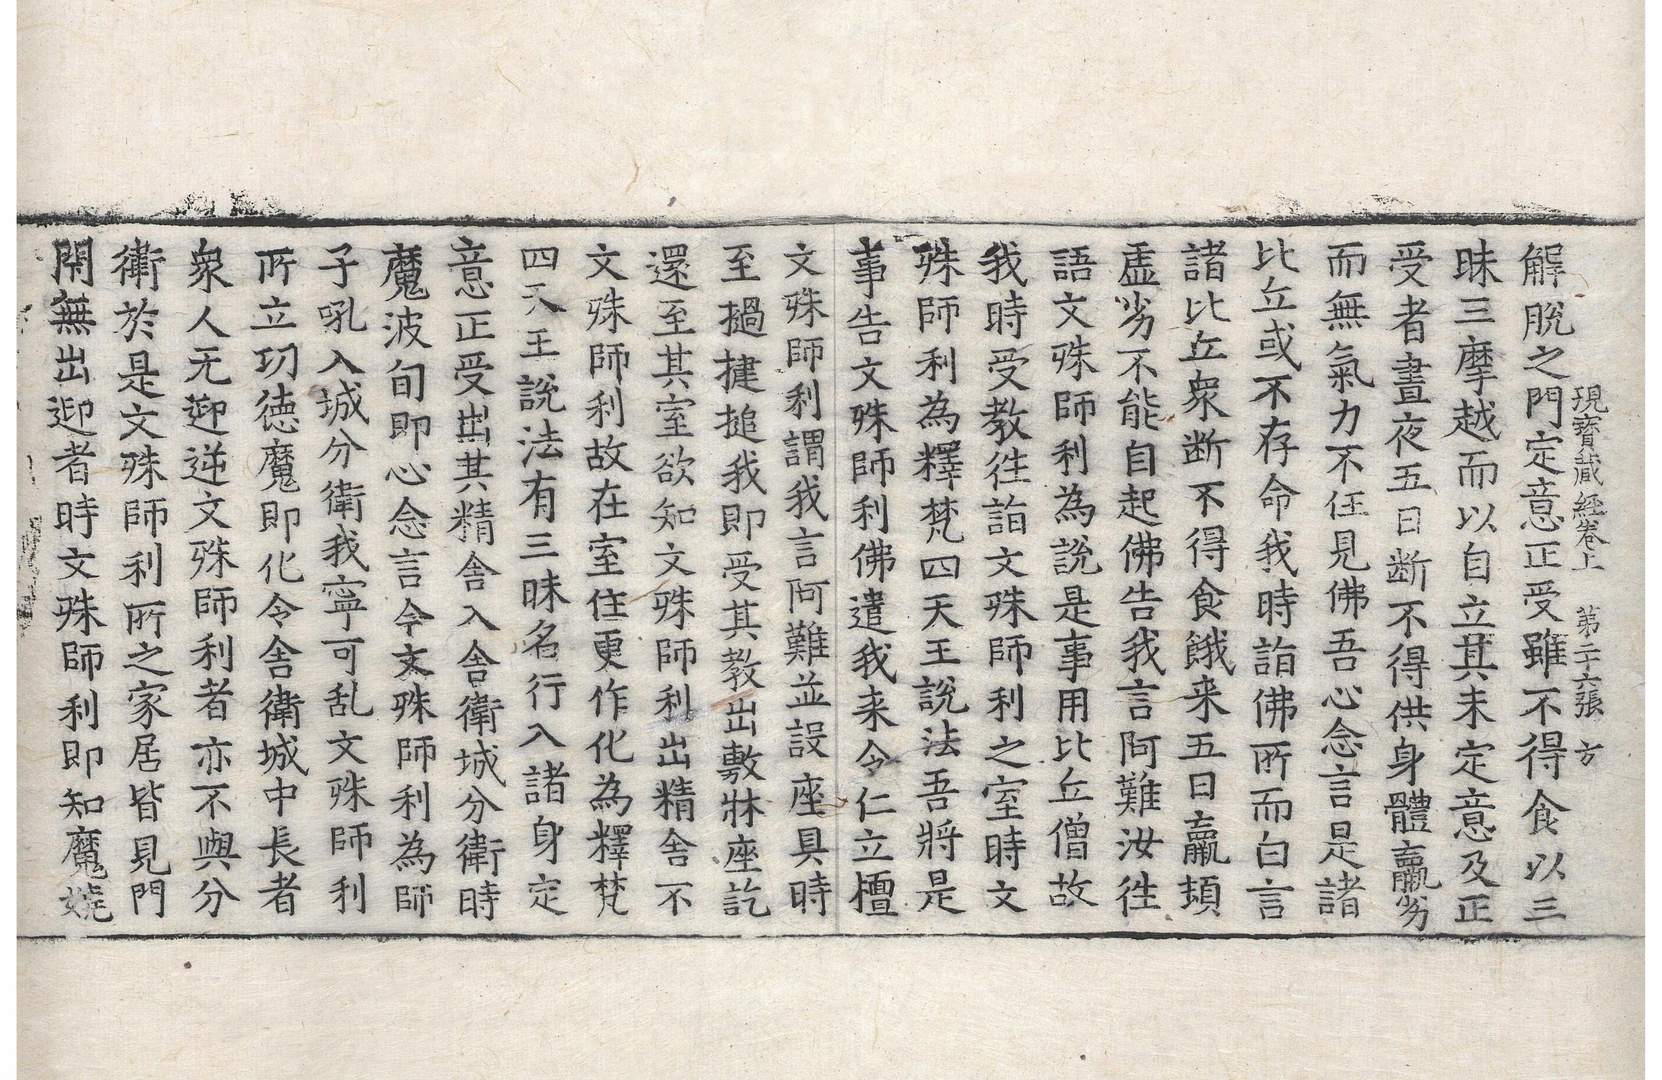 現寶藏經卷上 第二十六張 方
解脫之門定意正受雖不得食以三
昧三摩越而以自立其未定意及正
受者晝夜五日断不得供身體羸劣
而無氣力不任見佛吾心念言是諸
比丘或不存命我時詣佛所而白言
諸比丘衆断不得食餓来五日羸頓
虛劣不能自起佛告我言阿難汝往
語文殊師利為說是事用比丘僧故
我時受教往詣文殊師利之室時文
殊師利為釋梵四天王說法吾將是
事告文殊師利佛遣我来令仁立檀
文殊師利謂我言阿難並設座具時
至撾揵搥我即受其教出敷牀座訖
還至其室欲知文殊師利出精舍不
文殊師利故在室住更作化為釋梵
四天王說法有三昧名行入諸身定
意正受出其精舍入舍衛城分衛時
魔波旬即心念言今文殊師利為師
子吼入城分衛我寧可乱文殊師利
所立功德魔即化令舍衛城中長者
衆人无迎逆文殊師利者亦不與分
衛於是文殊師利所之家居皆見門
閇無出迎者時文殊師利即知魔嬈